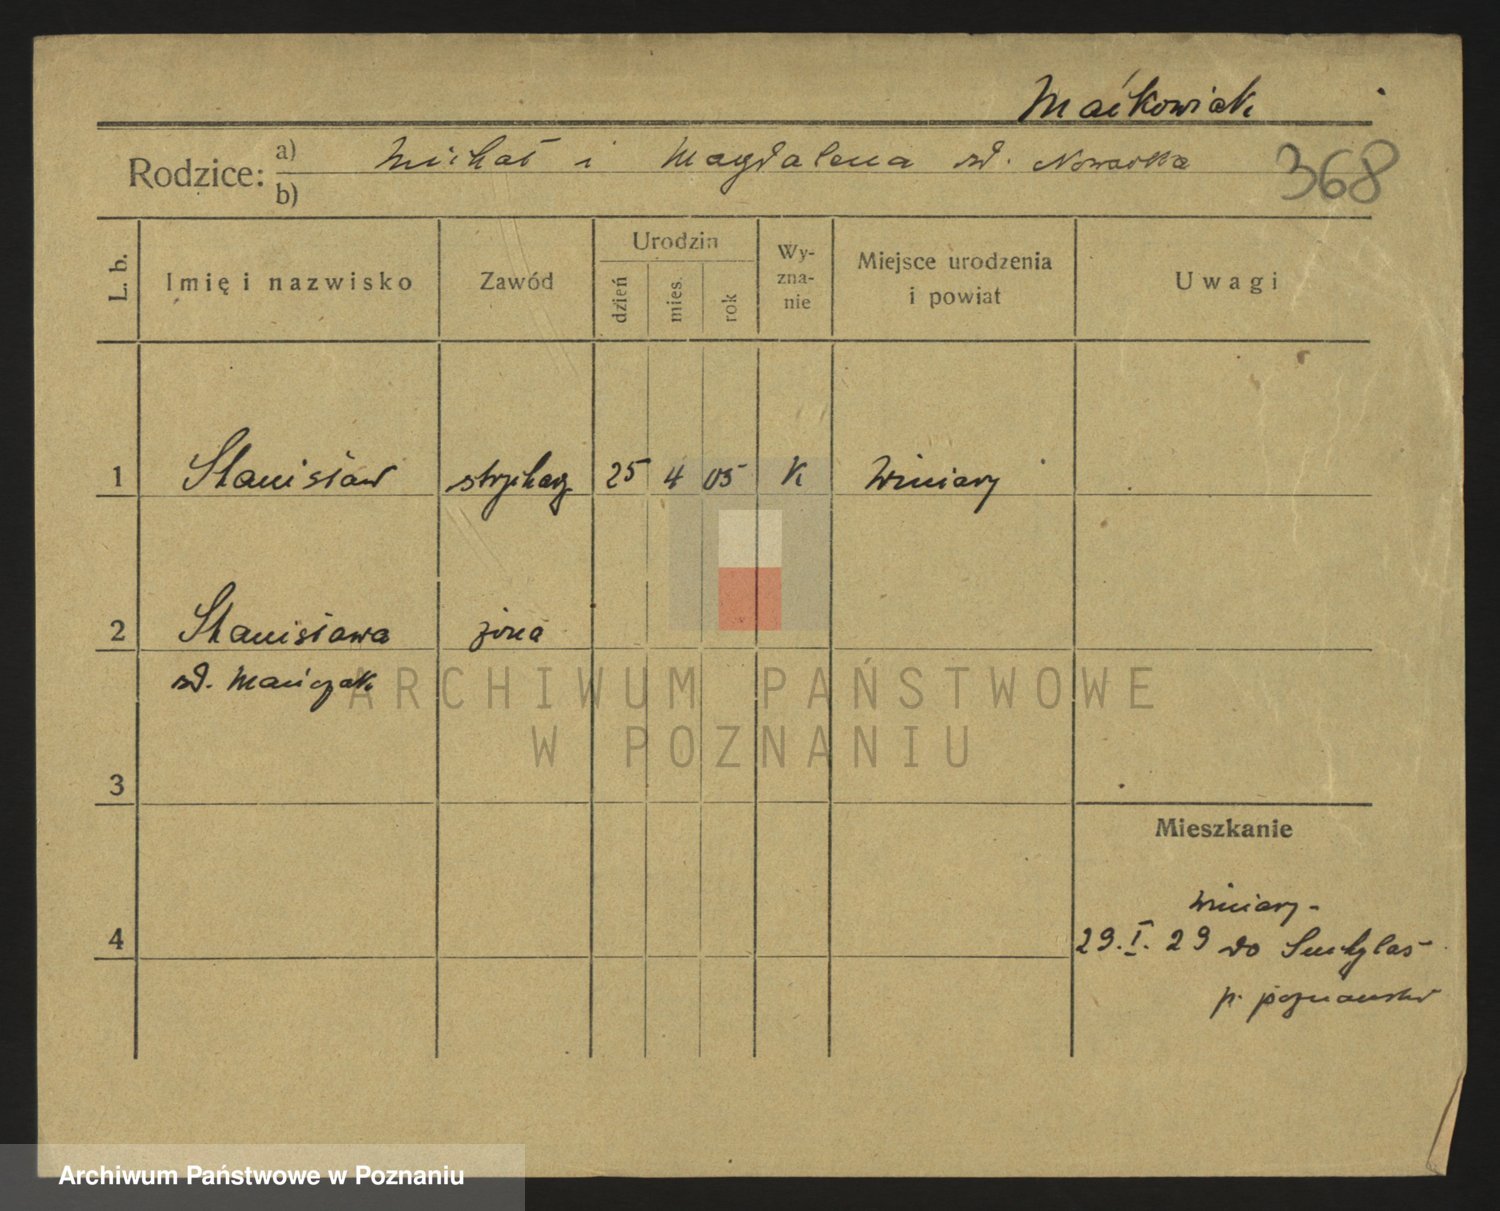 Maćkowiak
Rodzice: a) Michał i Magdalena zd. Nowacka
b)
368
L. b.
Imię i nazwisko
Zawód
Urodzin
dzień
mies.
rok
Wy-
zna-
nie
Miejsce urodzenia
i powiat
Uwagi
1 Stanisław strycharz 25 4 05 K Winiary
2 Stanisława żona
zd. Mańczak
3
4
Mieszkanie
Winiary -
29. I. 29 do Suchylas
p. poznański
ARCHIWUM PAŃSTWOWE
W POZNANIU
Archiwum Państwowe w Poznaniu